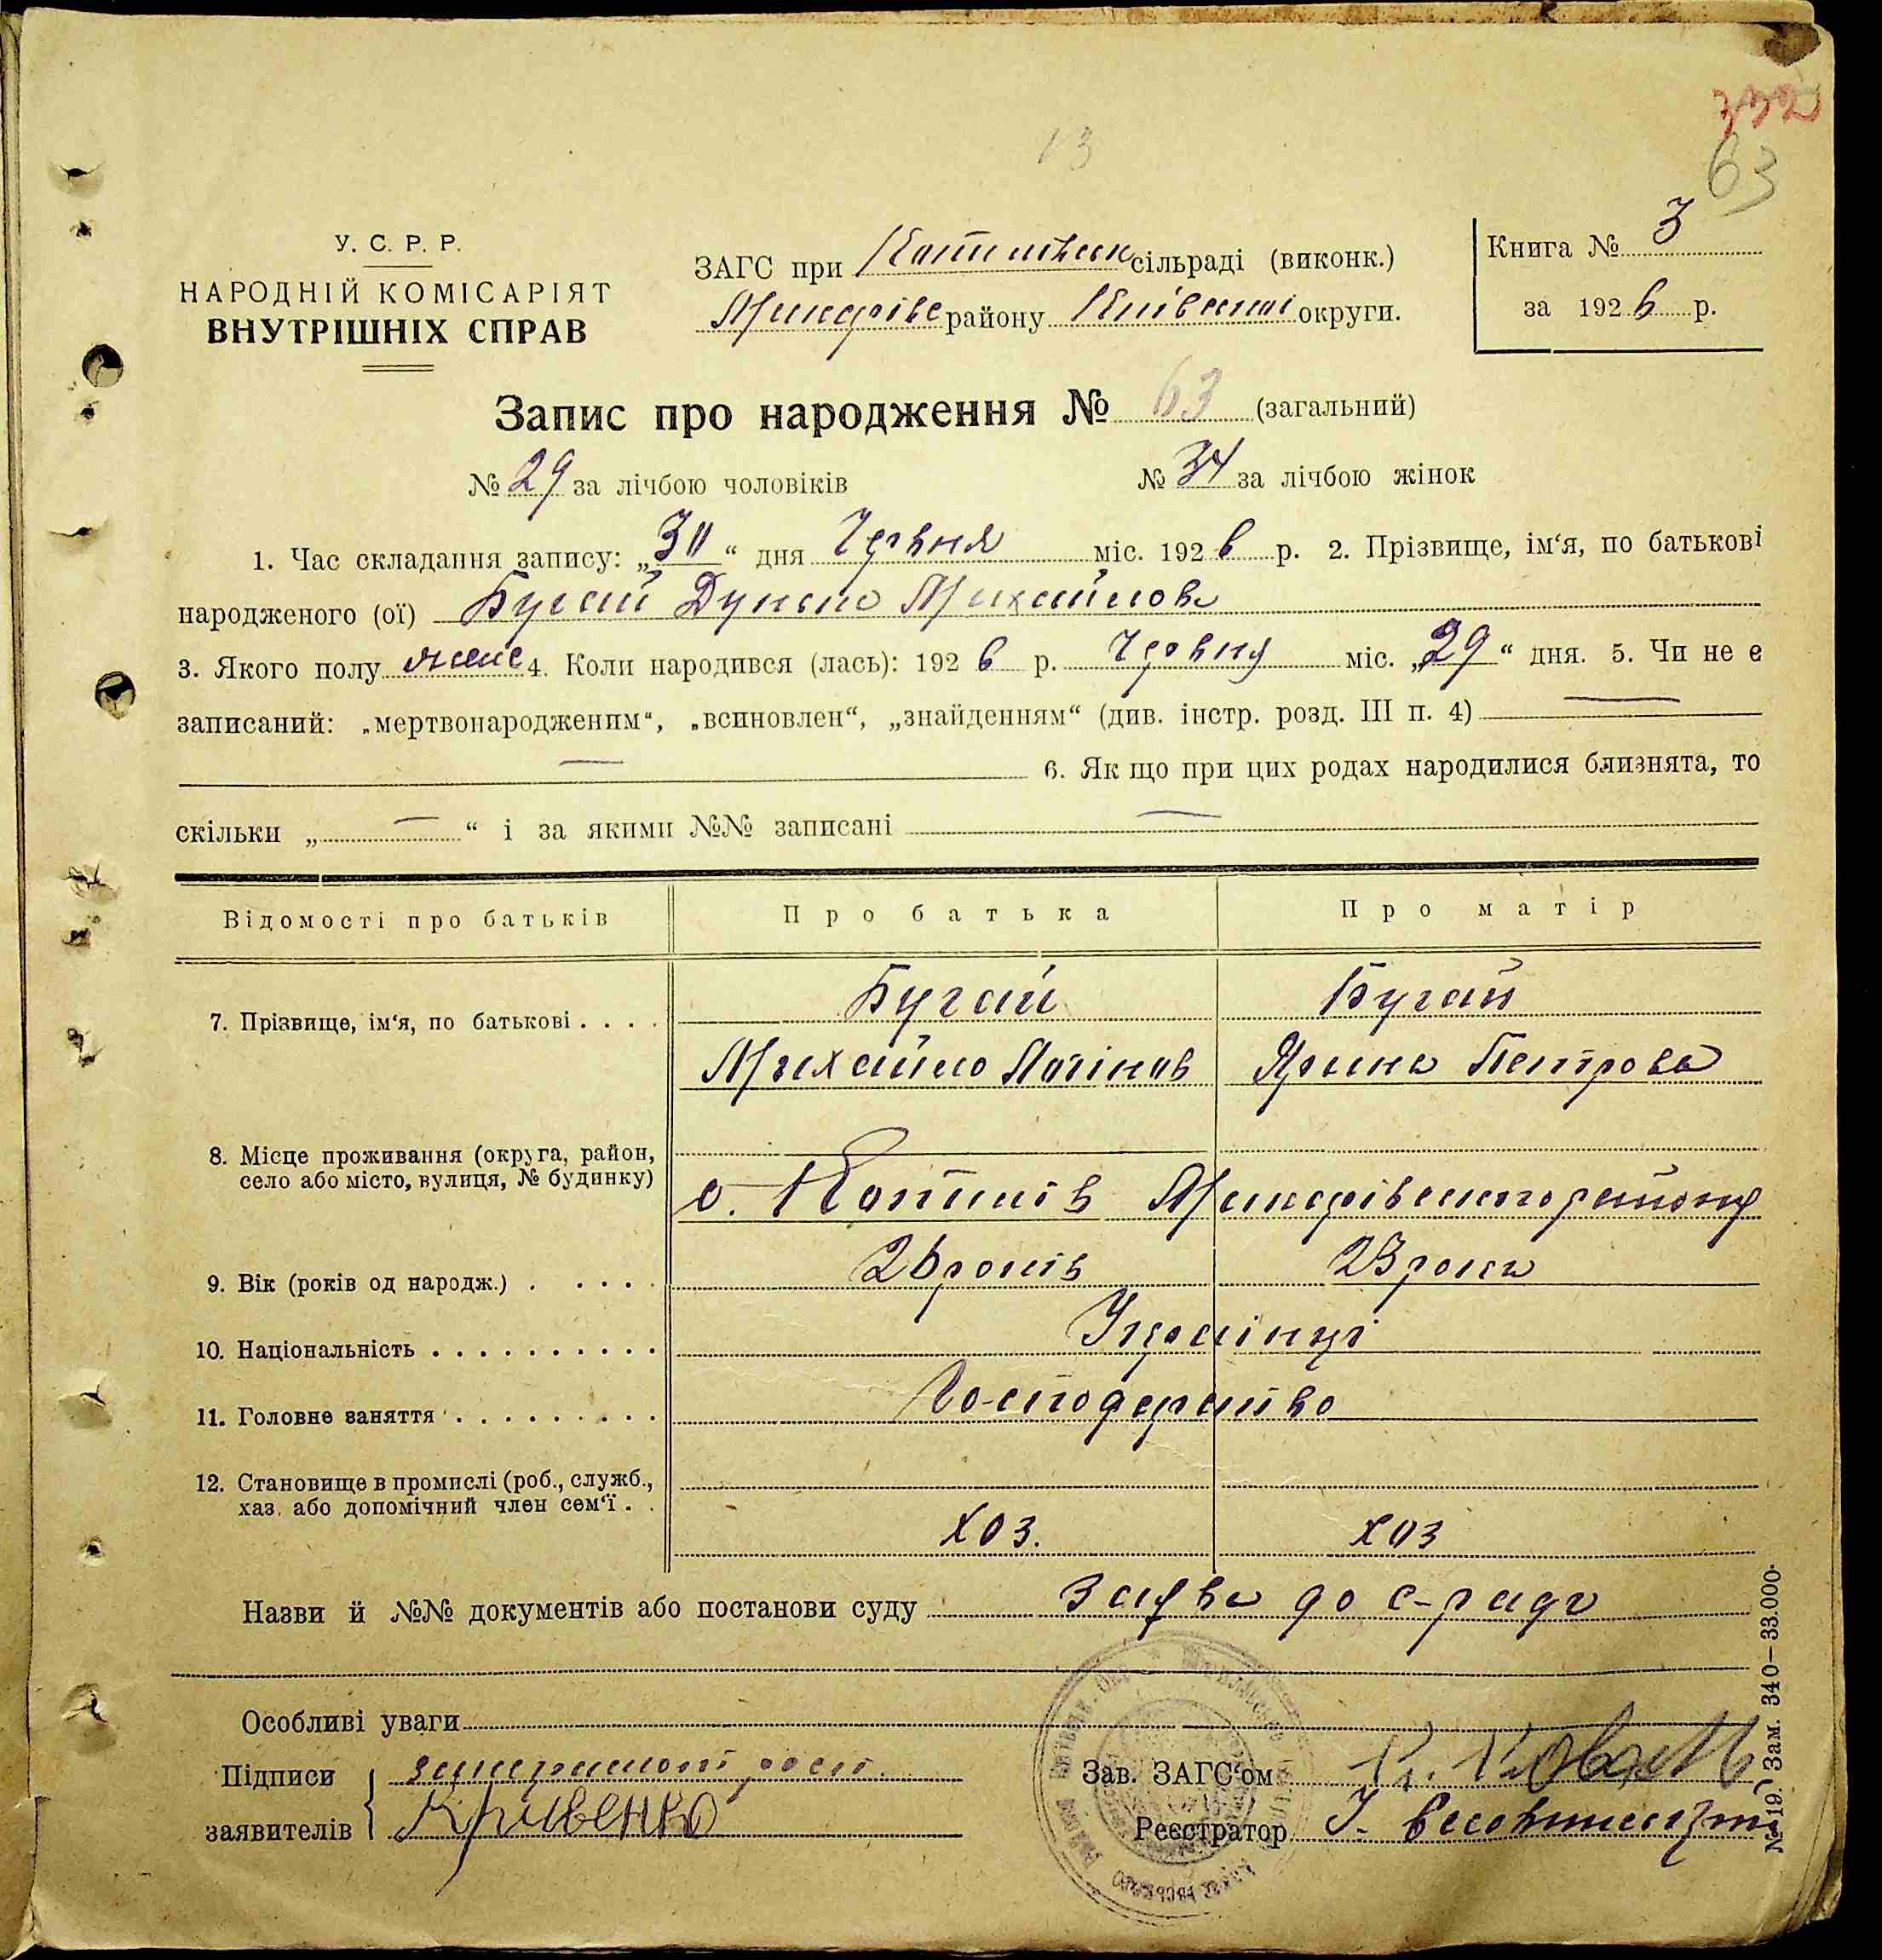 332
13
63
У. С. Р. Р.
НАРОДНІЙ КОМІСАРІЯТ
ВНУТРІШНІХ СПРАВ
ЗАГС при Копилівськ сільраді (виконк.)
Макарівс району Київської округи.
Книга № 3
за 1926 р.
Запис про народження № 63 (загальний)
№ 29 за лічбою чоловіків № 34 за лічбою жінок
1. Час складання запису: „30“ дня Червня міс. 1926 р. 2. Прізвище, ім‘я, по батькові
народженого (ої) Бугай Дунька Михайлова
3. Якого полу жінс 4. Коли народився (лась): 1926 р. Червня міс. „29“ дня. 5. Чи не є
записаний: „мертвонародженим“, „всиновлен“, „знайденням“ (див. інстр. розд. III п. 4) —
— 6. Як що при цих родах народилися близнята, то
скільки „ — “ і за якими №№ записані —
Відомості про батьків Про батька Про матір
7. Прізвище, ім‘я, по батькові . . . . Бугай Бугай
Михайло Логінов Ярина Петрова
8. Місце проживання (округа, район,
село або місто, вулиця, № будинку) с. Копилів Макарівського району
9. Вік (років од народж.) . . . . . 26 років 23 роки
10. Національність . . . . . . . . . . Українці
11. Головне заняття . . . . . . . . . Господарство
12. Становище в промислі (роб., служб.,
хаз. або допомічний член сем‘ї . .
хоз. хоз
Назви й №№ документів або постанови суду Заява до с-ради
Особливі уваги
Підписи
заявителів Кривенко
Зав. ЗАГС‘ом
Реєстратор
№ 19. Зам. 340—33.000.